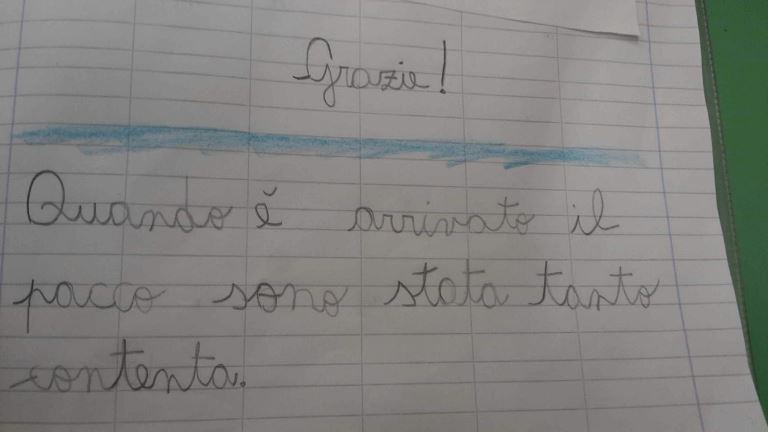 Grazie!
Quando è arrivato il
pacco sono stata tanto
contenta.